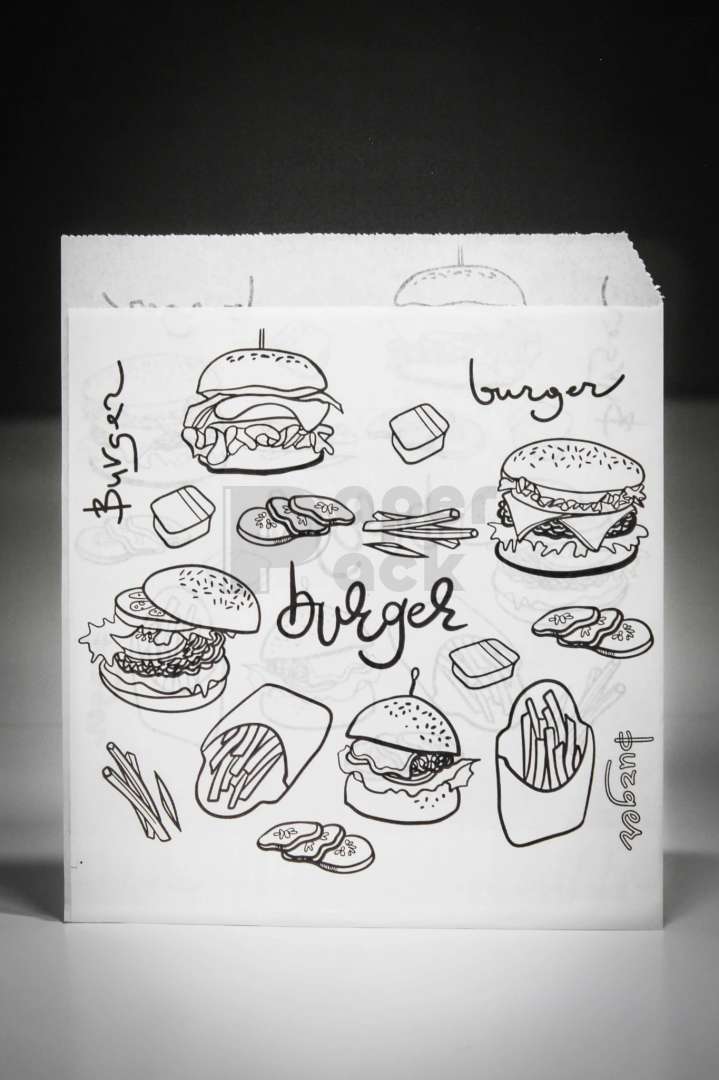 burger
Burger
Paper
Pack
burger
Burger